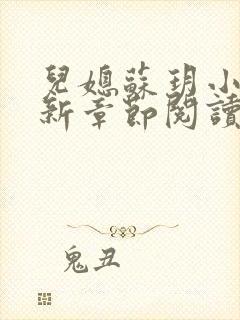 兒媳蘇玥小
新章節閱讀
鬼丑